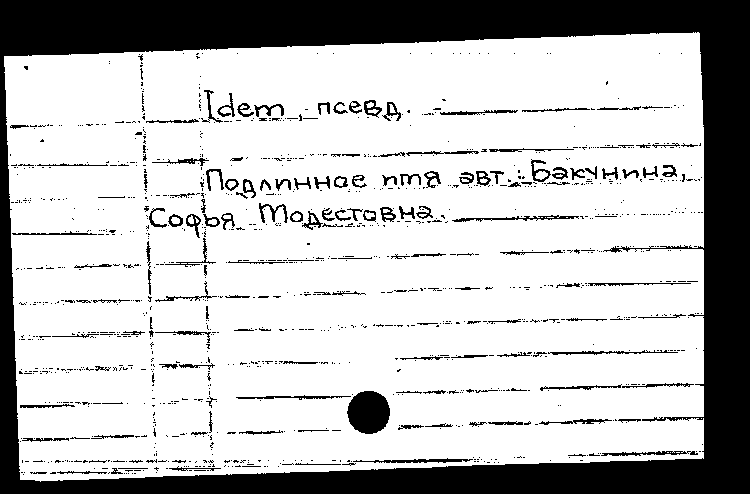 Idem, псевд.
Подлинное имя авт.: Бакунина,
Софья Модестовна.